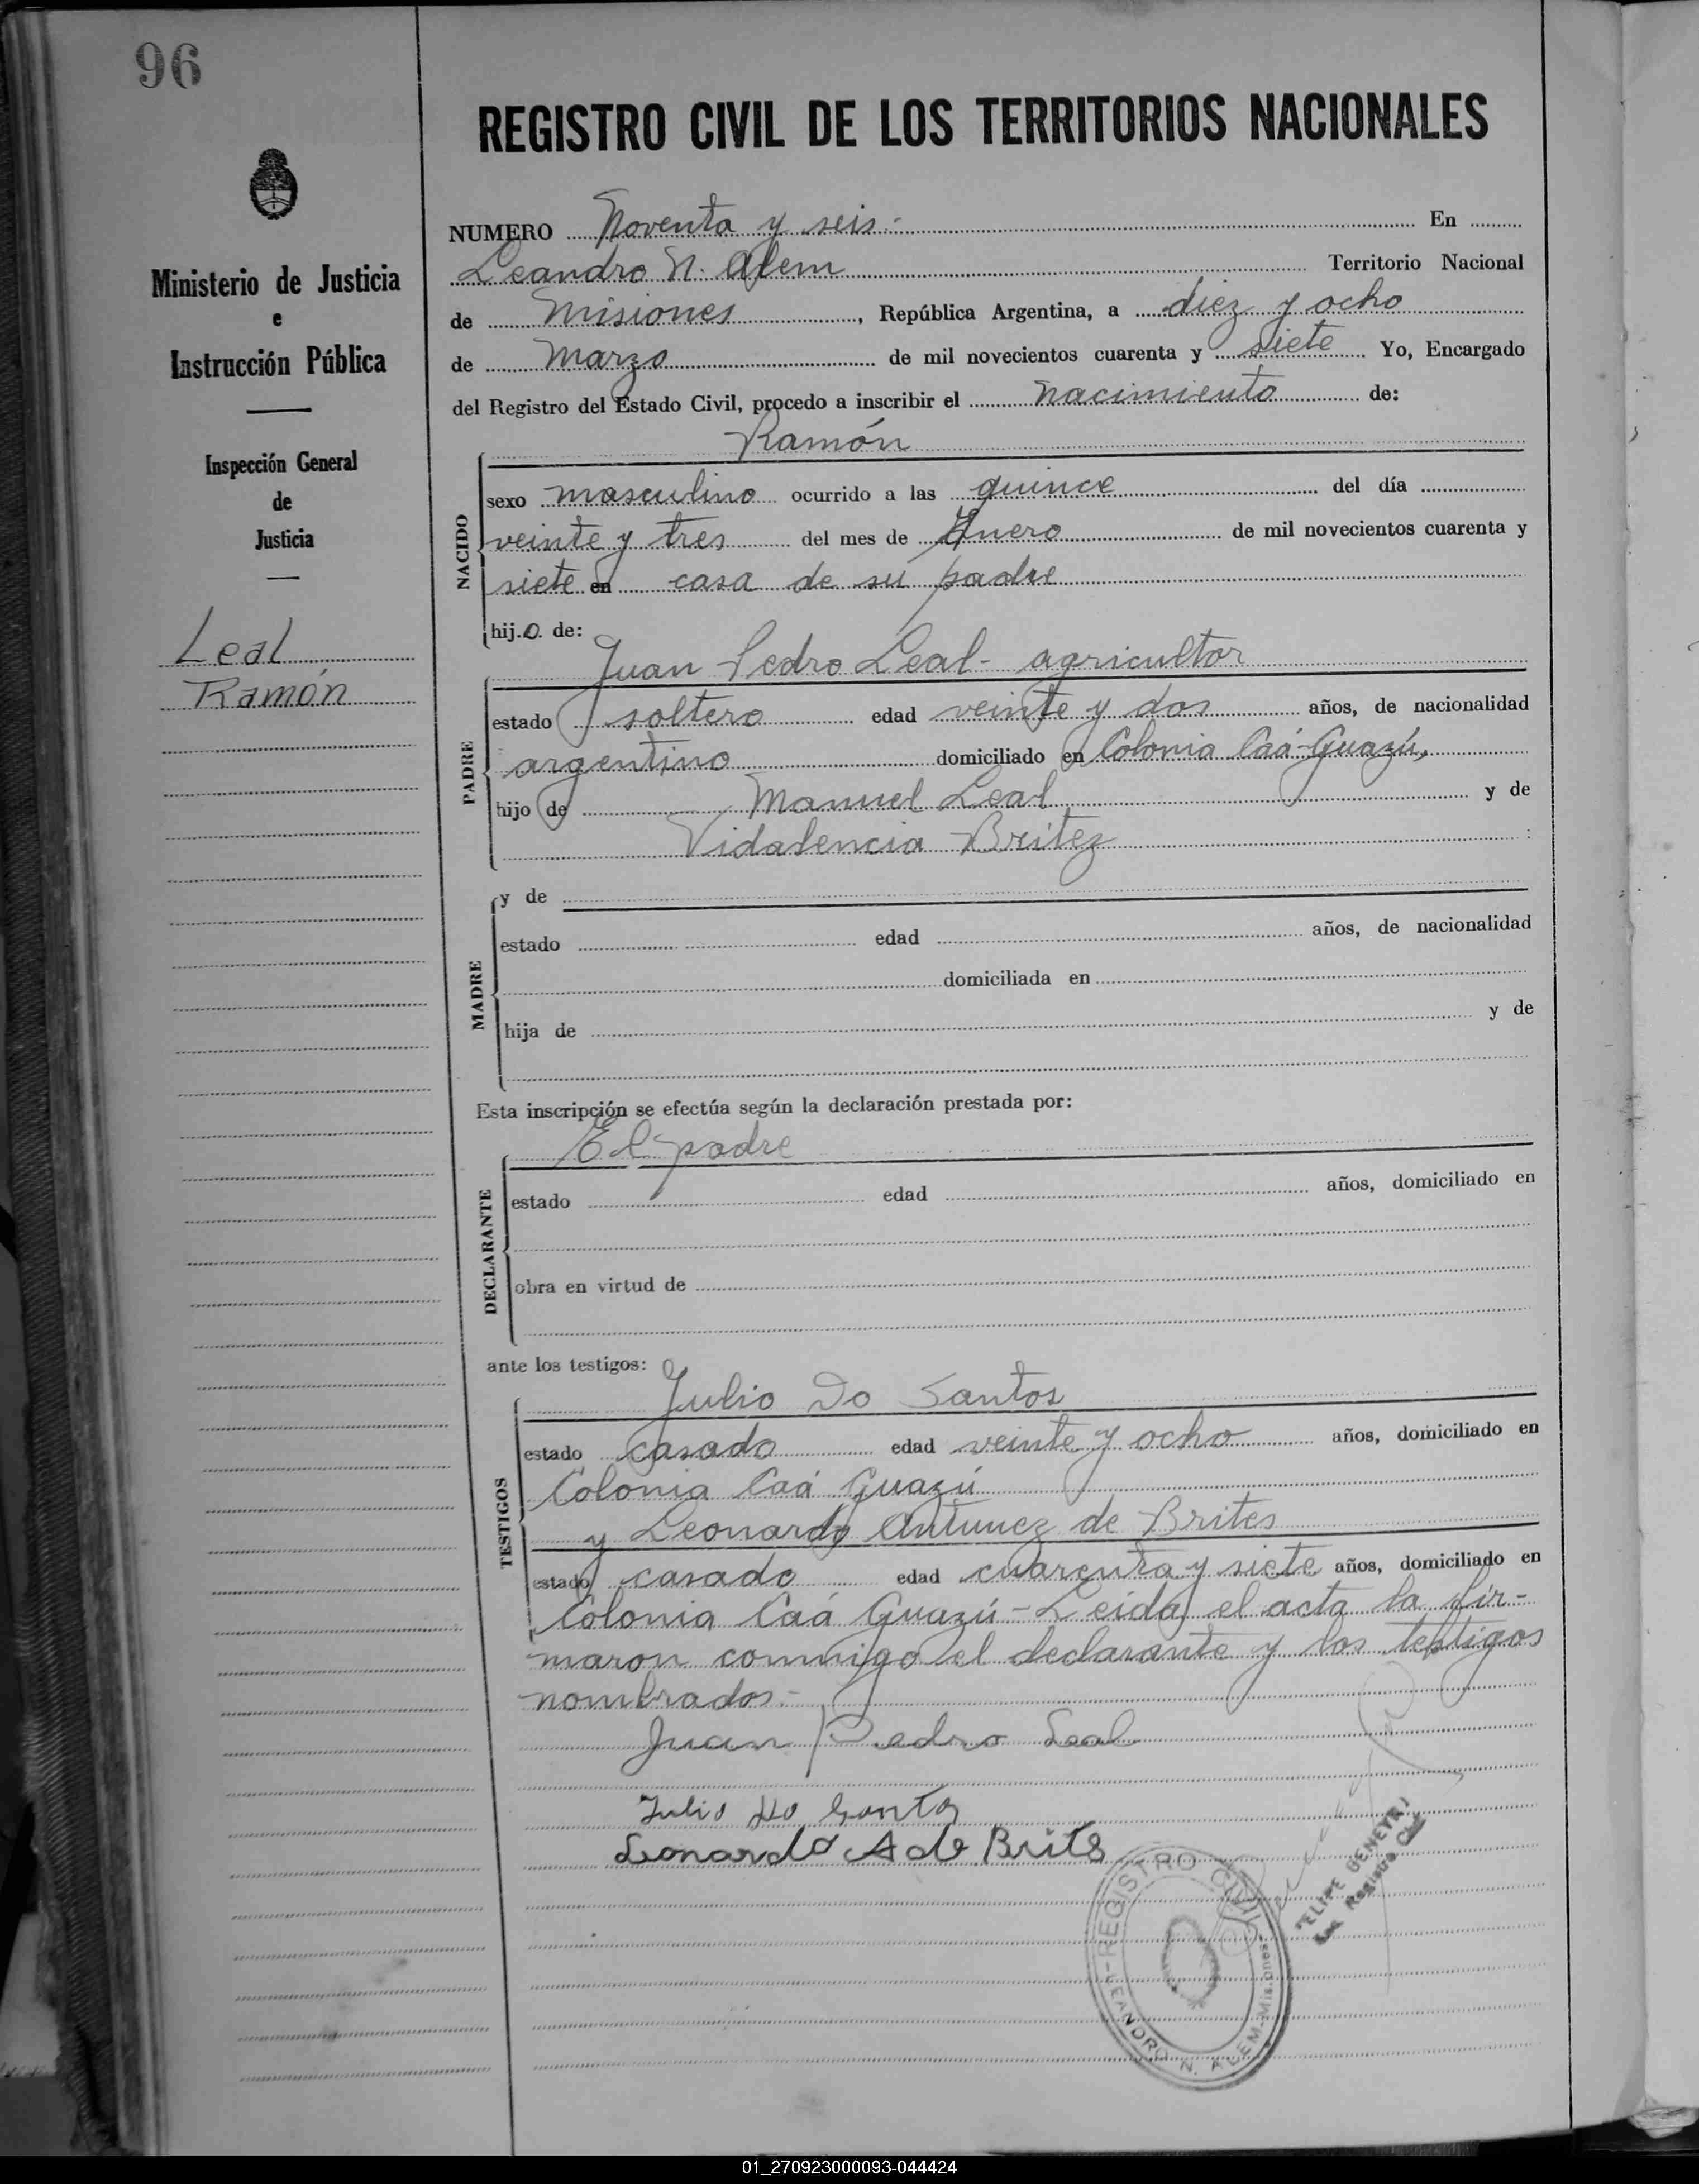 96
REGISTRO CIVIL DE LOS TERRITORIOS NACIONALES
Ministerio de Justicia
e
Instrucción Pública
Inspección General
de
Justicia
Leal
Ramón
NUMERO Noventa y seis.- En
Leandro N. Alem Territorio Nacional
de Misiones, República Argentina, a diez y ocho
de Marzo de mil novecientos cuarenta y siete Yo, Encargado
del Registro del Estado Civil, procedo a inscribir el nacimiento de:
Ramón
NACIDO
sexo masculino ocurrido a las quince del día
veinte y tres del mes de Enero de mil novecientos cuarenta y
siete en casa de su padre
hij.o. de:
Juan Pedro Leal - agricultor
PADRE
estado soltero edad veinte y dos años, de nacionalidad
argentino domiciliado en Colonia Caá-Guazú,
hijo de Manuel Leal y de
Vidalencia Britez
MADRE
y de
estado edad años, de nacionalidad
domiciliada en
hija de y de
Esta inscripción se efectúa según la declaración prestada por:
El padre
DECLARANTE
estado edad años, domiciliado en
obra en virtud de
ante los testigos:
Julio Do Santos
TESTIGOS
estado casado edad veinte y ocho años, domiciliado en
Colonia Caá Guazú
y Leonardo Antunez de Brites
estado casado edad cuarenta y siete años, domiciliado en
Colonia Caá Guazú - Leida el acta la fir-
maron conmigo el declarante y los testigos
nombrados.-
Juan Pedro Leal
Julio Do Santos
Leonardo A de Brits
REGISTRO CIVIL
LEANDRO N. ALEM - Misiones
FELIPE
Registro
01_270923000093-044424